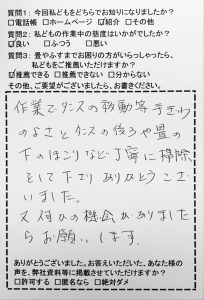 質問1: 今回私どもをどちらでお知りになりましたか?
□電話帳 □ホームページ ☑紹介 □その他
質問2: 私どもの作業中の態度はいかがでしたか?
☑良い □ふつう □悪い
質問3: 畳やふすまでお困りの方がいらっしゃったら、
私どもをご推薦いただけますか?
☑推薦できる □推薦できない □分からない
その他、ご要望がございましたら、お書きください。
作業でタンスの移動等手ぎわ
のよさとタンスの後ろや畳の
下のほこりなど丁寧に掃除
をして下さりありがとうござ
いました。
又何かの機会がありました
らお願いします。
ありがとうございました。お答えいただいた、あなた様の
声を、弊社資料等に掲載させていただけますか?
□許可する □匿名なら □絶対ダメ